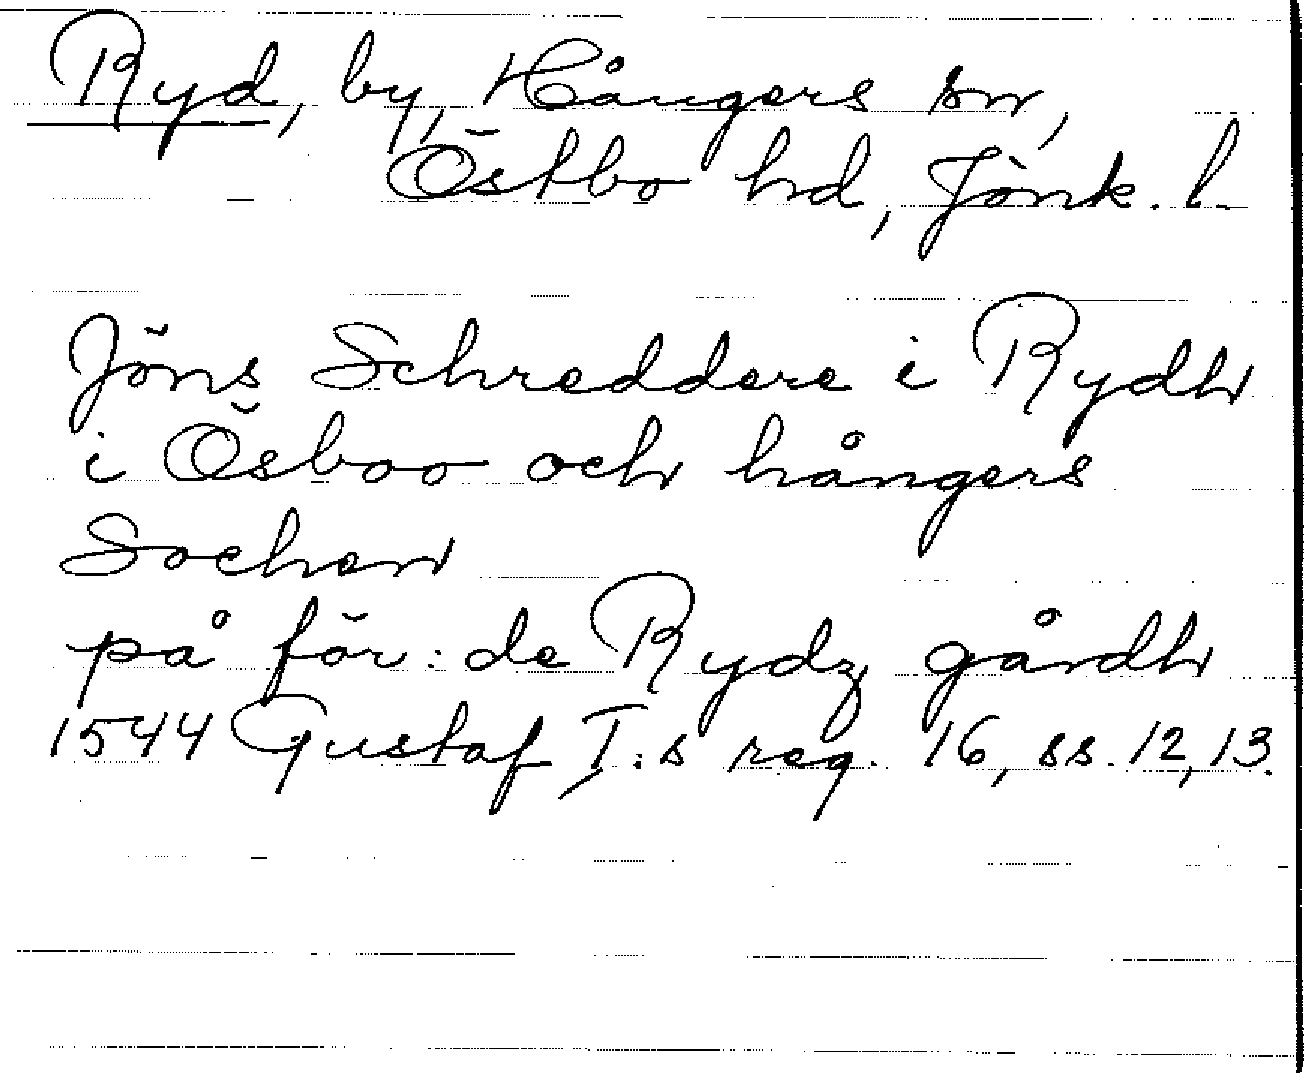 Ryd, by, Hångers sn,
Östbo hd, Jönk. l.
Jöns Schreddere i Rydh
i Ösboo och hångers
Sochen
på för: de Rydz gårdh
1544 Gustaf I:s reg. 16, ss. 12, 13.